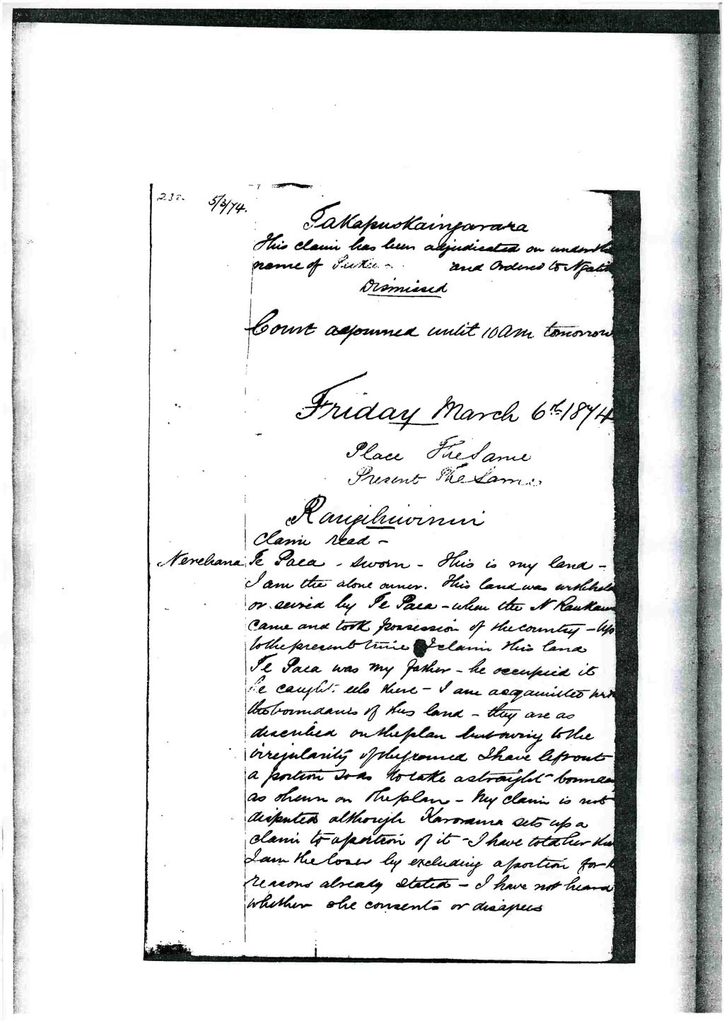 237. 5/3/74.
Takapuokaingarara
This claim has been adjudicated on under the
name of and Ordered to
Dismissed
Court adjourned until 10 am tomorrow
Friday March 6th 1874
Place The Same
Present The Same
Rangihiwinui
Claim read –
Nerehana Te Paea - sworn - This is my land -
I am the alone owner. This land was withheld
or seized by Te Paea - when the N Raukawa
came and took possession of the country - Up
to the present time I claim this land
Te Paea was my father - he occupied it
he caught eels there - I am acquainted with
the boundaries of this land - they are as
described on the plan but owing to the
irregularity of the ground I have left out
a portion so as to take a straight bounda
as shewn on the plan - My claim is not
disputed although sets up a
claim to a portion of it - I have told her
I am the loser by excluding a portion for
reasons already stated - I have not heard
whether she consents or disagrees